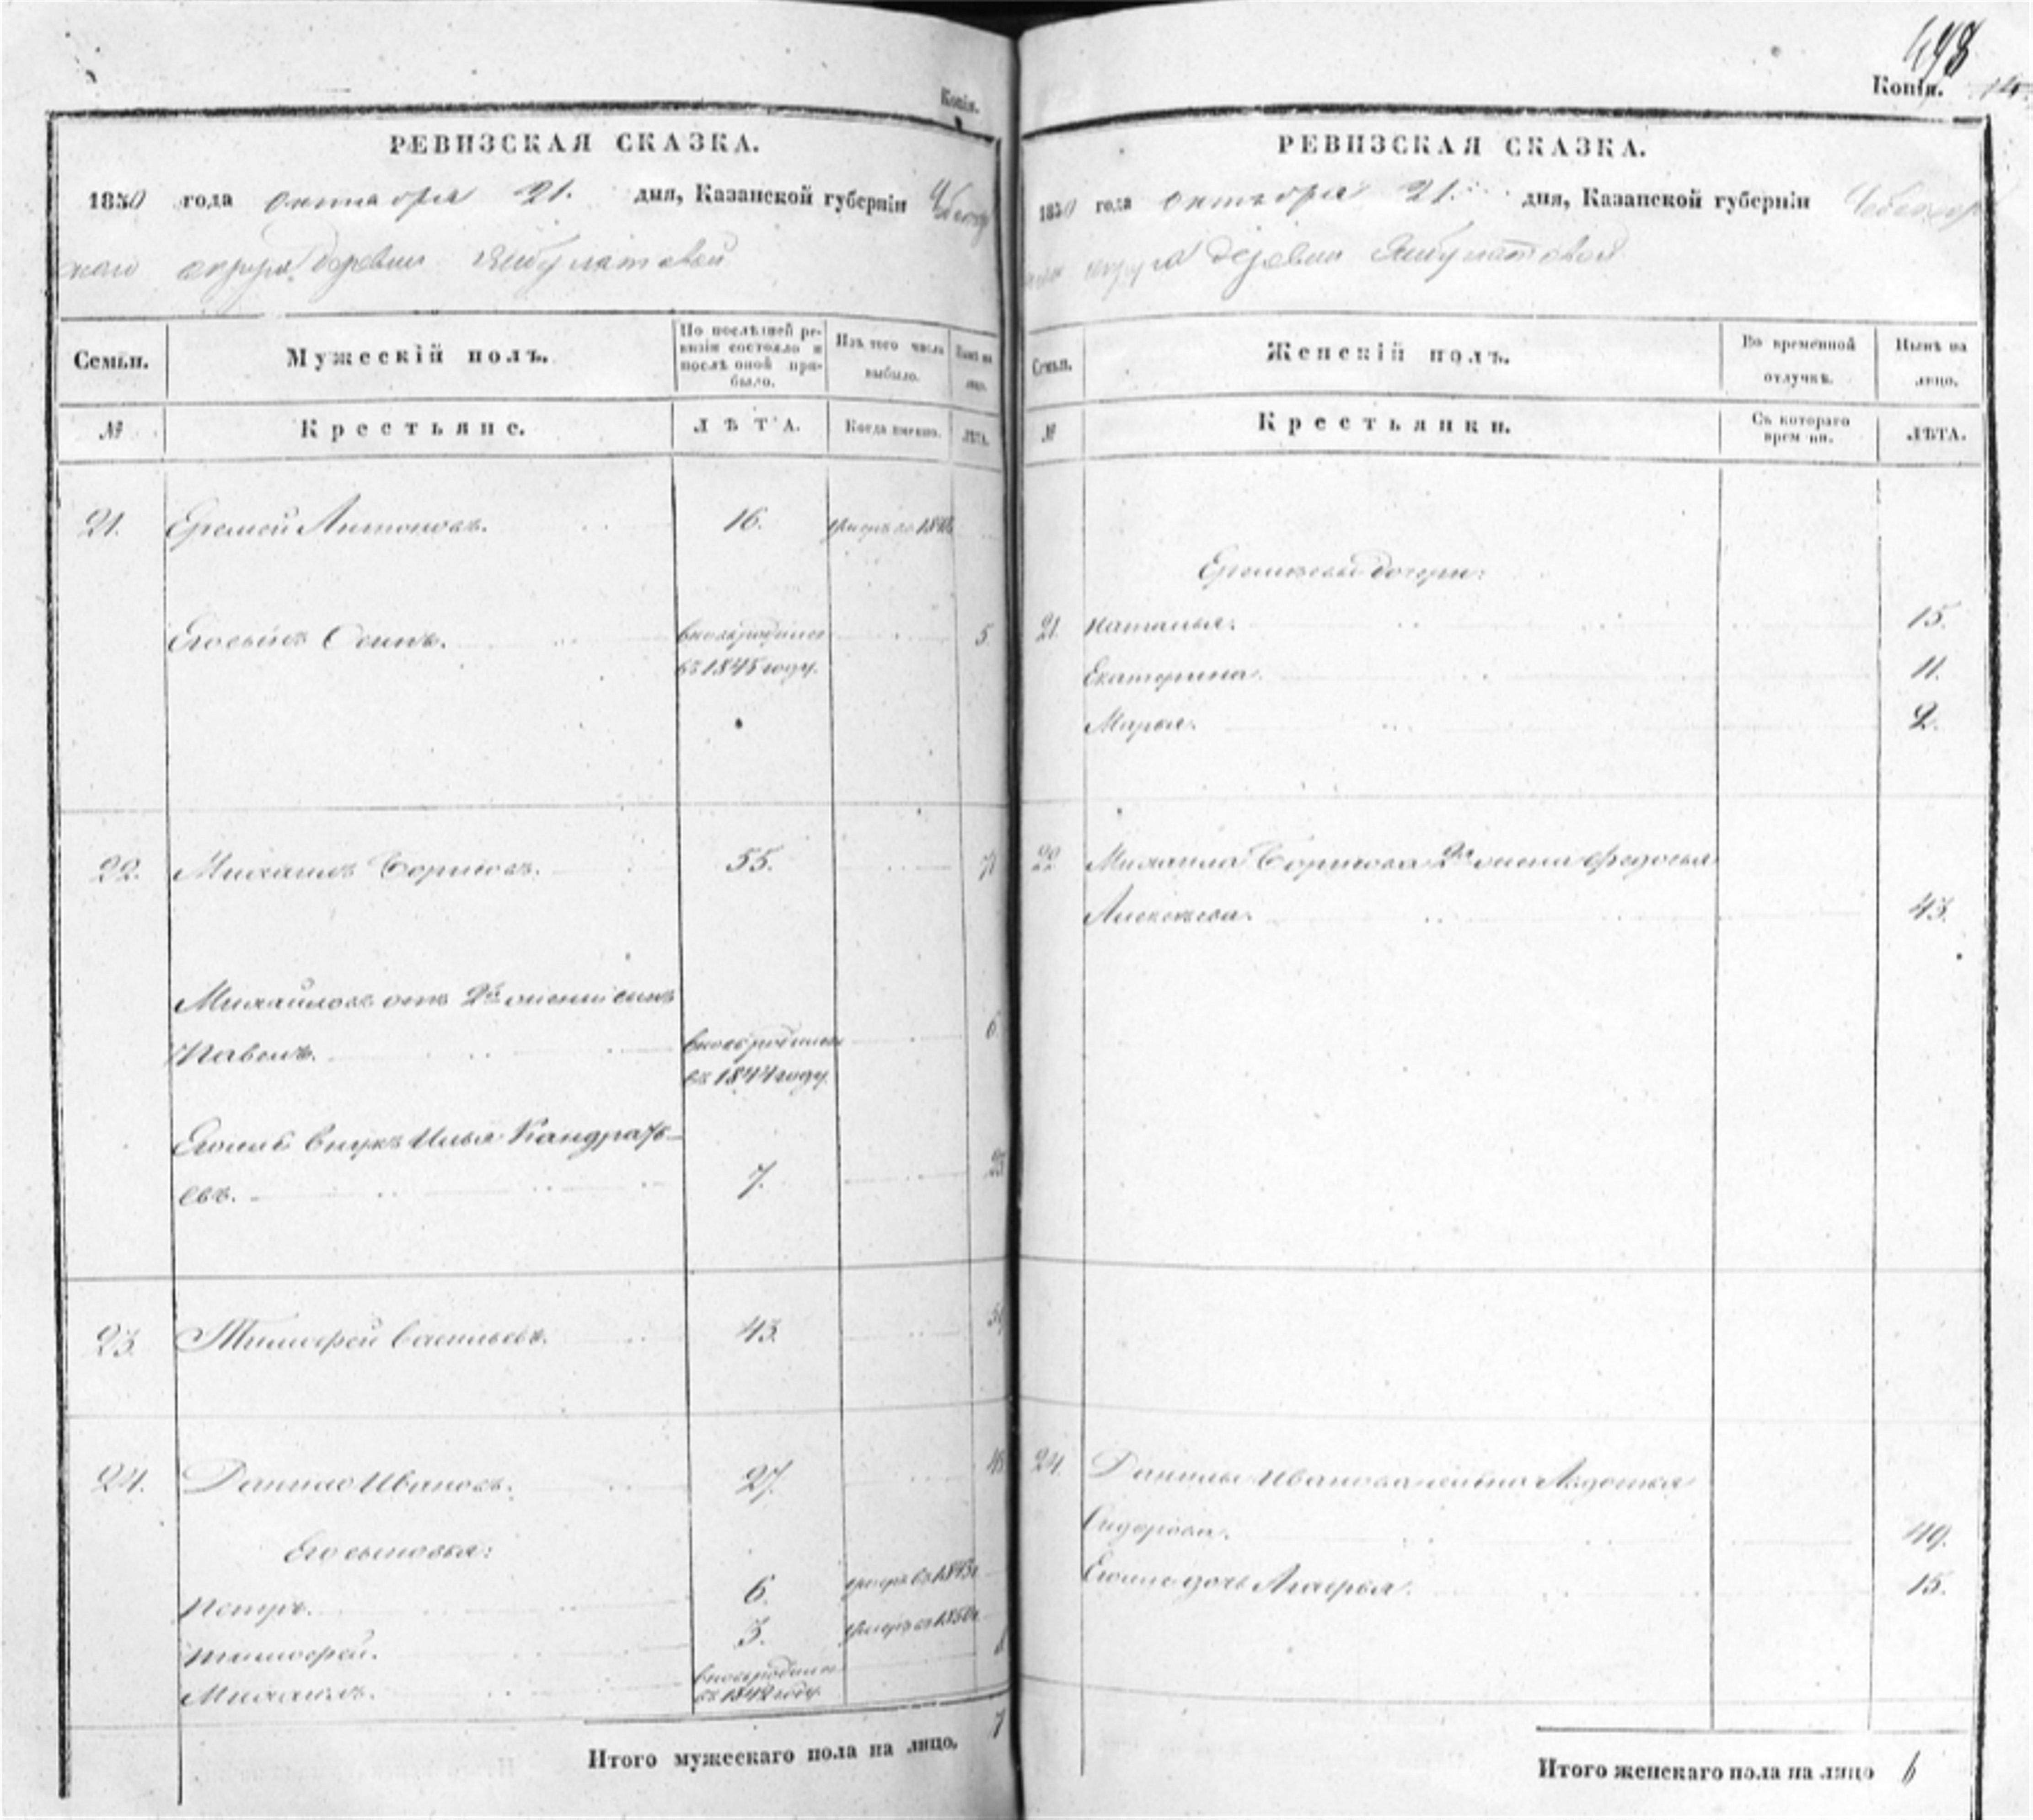 Копія.
РЕВИЗСКАЯ СКАЗКА.
1850 года октября 21. дня, Казанской губерніи Чебоксар
скаго округа деревни Янбулатовой
Семьи.
Мужескій полъ.
По послѣдней ре-
визіи состояло и
послѣ оной при-
было.
Изъ того числа
выбыло.
Нынѣ на
лицо.
№
Крестьяне.
ЛѢТА.
Когда именно.
ЛѢТА.
21. Еремей Антоновъ. 16. умеръ въ
Его сынъ Осипъ. вновь родился 5.
въ 1845 году.
22. Михаилъ Борисовъ. 55.
Михайловъ отъ 2й жены сынъ
Павелъ. вновь родился 6.
въ 1844 году.
Его же внукъ Илья Кандрать-
евъ. 7. 23
23. Тимофей Васильевъ. 43.
24. Данило Ивановъ. 27.
Его сыновья:
Петръ. 6. умеръ въ
Тимофей. 3. умеръ въ 1850
Михаилъ. вновь родился 8
въ 1842 году.
Итого мужескаго пола на лицо. 7
698
Копія. 14.
РЕВИЗСКАЯ СКАЗКА.
1850 года октября 21. дня, Казанской губерніи Чебоксар
скаго округа деревни Янбулатовой
Семьи.
Женскій полъ.
Во временной
отлучкѣ.
Нынѣ на
лицо.
№
Крестьянки.
Съ котораго
времени.
ЛѢТА.
Еремеевы дочери:
21. Наталья. 15.
Екатерина. 11.
Марья. 2.
22 Михаила Борисова 2я жена Федосья
Алексеева. 43.
24. Данилы Иванова жена Авдотья
Сидорова. 49.
Его же дочь Агафья. 15.
Итого женскаго пола на лицо 6